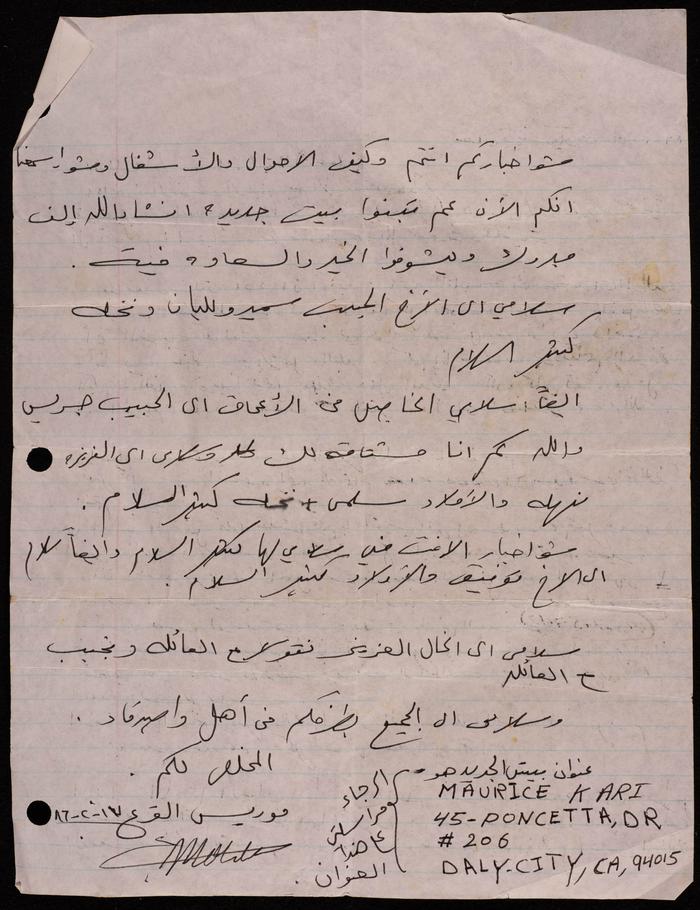 شو اخباركم انتم وكيف الاحوال والأشغال وشو اسمعنا
انكم الأن عم تبنوا بيت جديد، انشاءالله الف
مبروك وتشوفوا الخير والسعاده فيه.
سلامي الى الأخ الحبيب سمير وليان ونخله
كثير السلام
ايضاً سلامي الخاص من الأعماق الى الحبيب جريس
والله كم انا مشتاقه لك وسلامي الى العزيزه
نهله والأولاد سلمى + نخله كثير السلام.
شو اخبار الاخت سلامي لها كثير السلام وايضاً سلام
الى الاخ توفيق والأولاد كثير السلام.
سلامي الى الخال العزيز نقولا مع العائله ونجيب
مع العائله
وسلامي الى الجميع بطرفكم من أهل واصدقاء.
المخلص لكم.
موريس القرع ١٧-٢-٨٦
عنوان بيتي الجديد هو
MAURICE KARI
45-PONCETTA, DR
# 206
DALY-CITY, CA, 94015
الرجاء
مراسلتي
على هذا
العنوان.